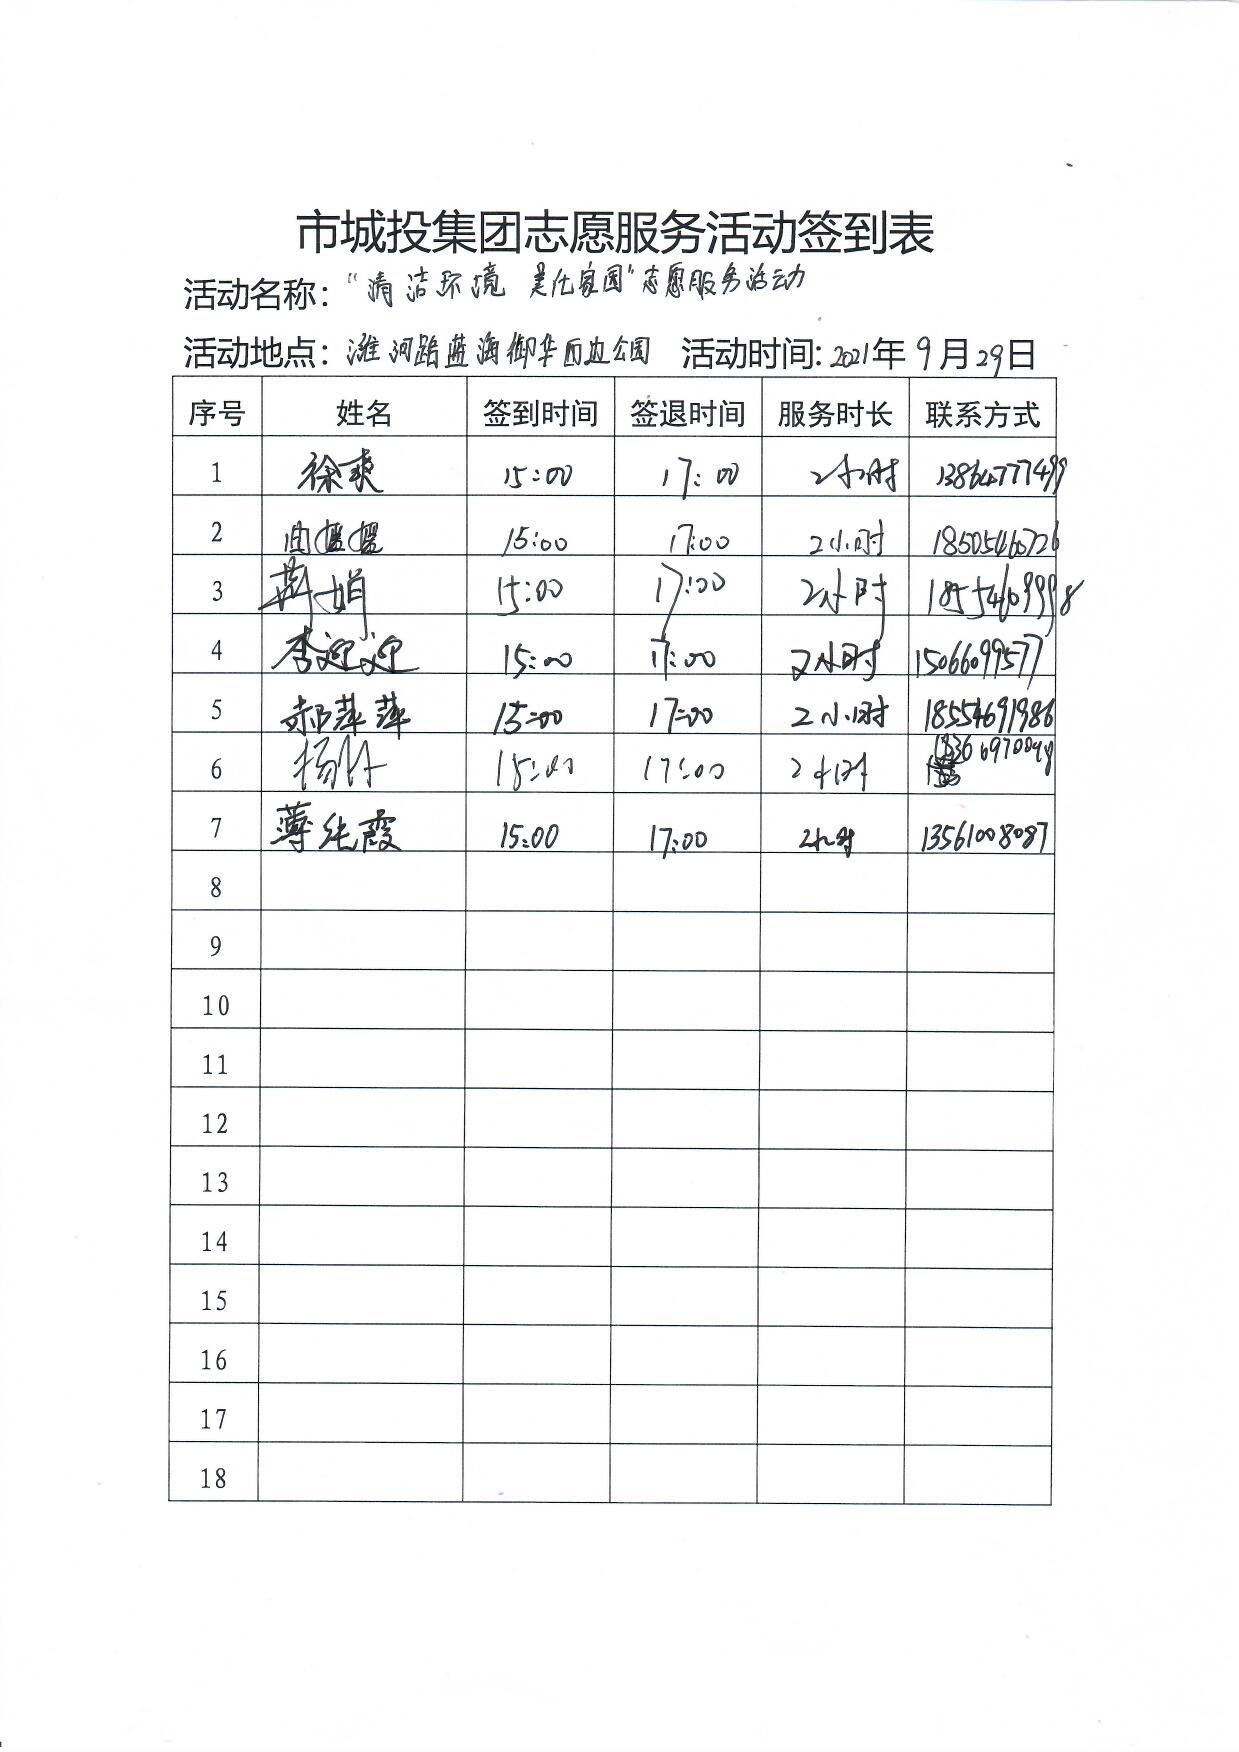 市城投集团志愿服务活动签到表
活动名称：“清洁环境 美化家园”志愿服务活动
活动地点：潍河路蓝海御华西边公园 活动时间：2021年9月29日
序号 姓名 签到时间 签退时间 服务时长 联系方式
1 徐爽 15:00 17:00 2小时 13864777499
2 15:00 17:00 2小时 18505460726
3 娟 15:00 17:00 2小时 18554609998
4 李迎迎 15:00 17:00 2小时 15066099577
5 郝萍萍 15:00 17:00 2小时 18554691986
6 杨 15:00 17:00 2小时
7 薄纯霞 15:00 17:00 2小时 13561008087
8
9
10
11
12
13
14
15
16
17
18